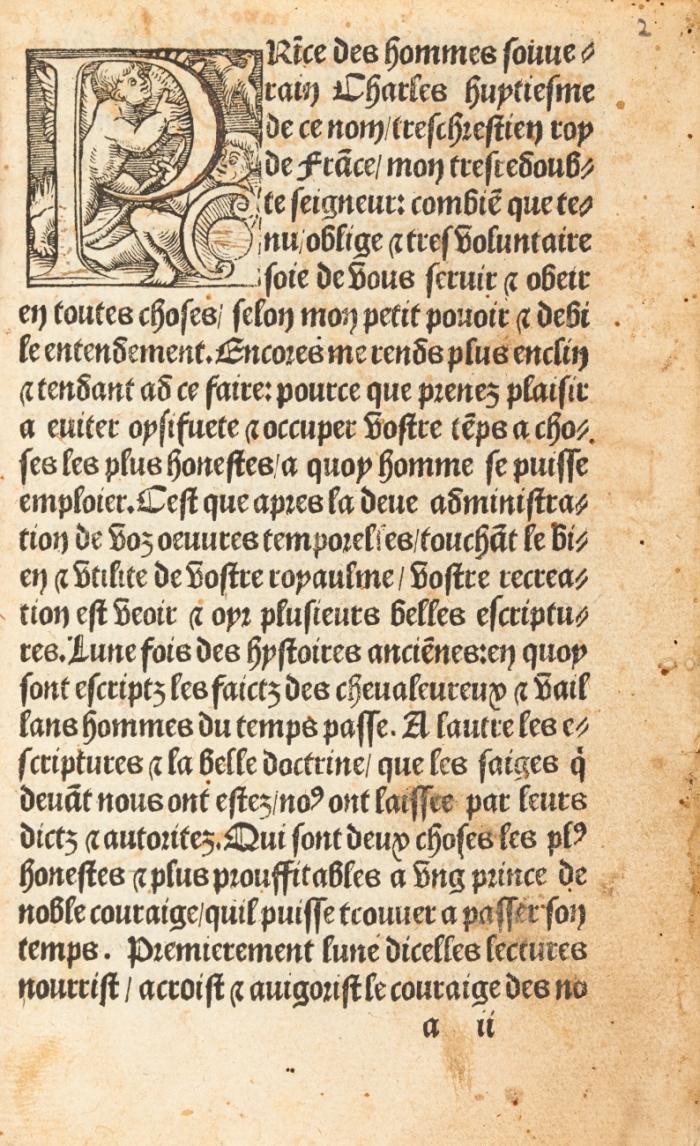 2
PRĩce des hommes souue⸗
rain Charles huytiesme
de ce nom/treschrestien roy
de Frãce/ mon tresredoub⸗
te seigneur: combiẽ que te⸗
nu/oblige ⁊ tres voluntaire
soie de vous seruir ⁊ obeir
en toutes choses/ selon mon petit pouoir ⁊ debi
le entendement. Encores me rends plus enclin
⁊ tendant ad ce faire: pource que prenez plaisir
a euiter oysifuete ⁊ occuper vostre tẽps a cho⸗
ses les plus honestes/a quoy homme se puisse
emploier. Cest que apres la deue administra⸗
tion de voz oeuures temporelles/touchãt le bi⸗
en ⁊ vtilite de vostre royaulme/ vostre recrea⸗
tion est veoir ⁊ oyr plusieurs belles escriptu⸗
res. Lune fois des hystoires anciẽnes: en quoy
sont escriptz les faictz des cheualeureux ⁊ vail
lans hommes du temps passe. A lautre les e⸗
scriptures ⁊ la belle doctrine/ que les saiges q̃
deuãt nous ont estez/noꝰ ont laissee par leurs
dictz ⁊ autoritez. Qui sont deux choses les plꝰ
honestes ⁊ plus prouffitables a vng prince de
noble couraige/quil puisse trouuer a passer son
temps. Premierement lune dicelles lectures
nourrist / acroist ⁊ auigorist le couraige des no
a ii